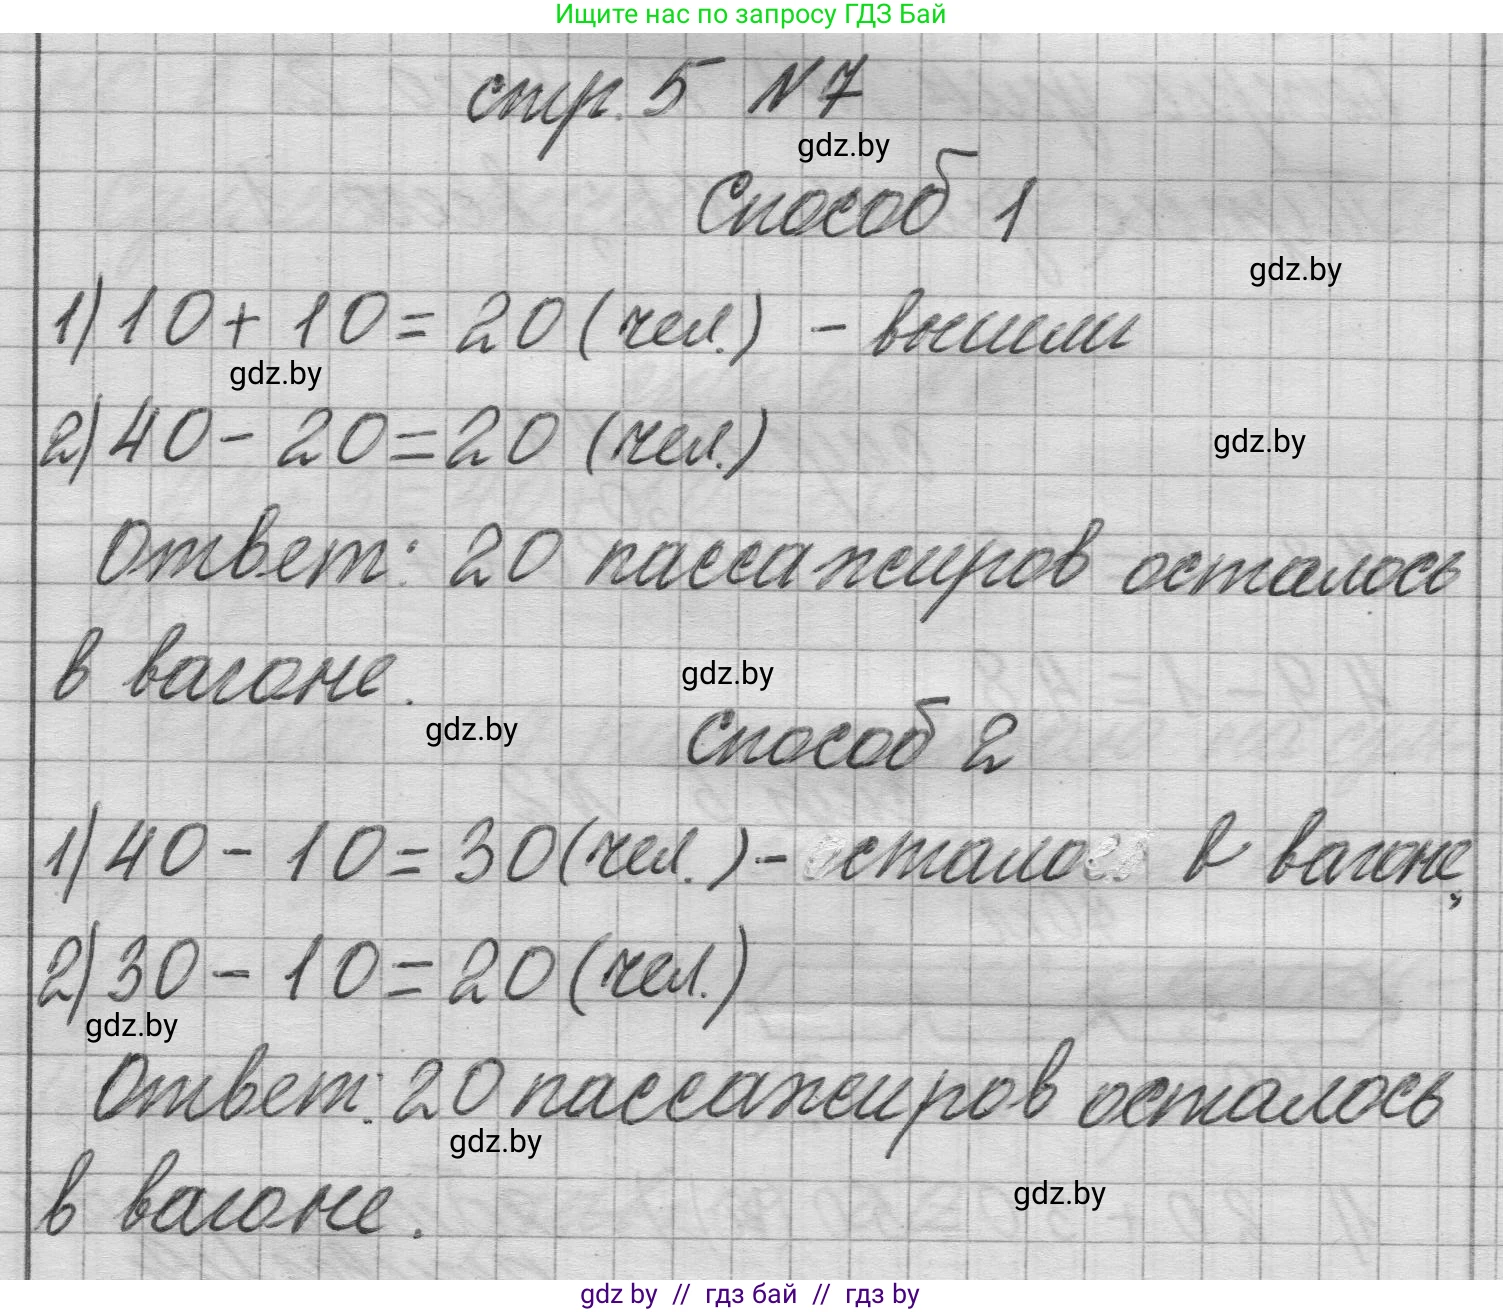 Ищите нас по запросу ГДЗ Бай
стр. 5 N 7
gdz.by
Способ 1
gdz.by
1) 10 + 10 = 20 (чел.) - вышли
gdz.by
2) 40 - 20 = 20 (чел.)
gdz.by
Ответ: 20 пассажиров осталось
в вагоне.
gdz.by
gdz.by
Способ 2
1) 40 - 10 = 30 (чел.) - осталось в вагоне,
2) 30 - 10 = 20 (чел.)
gdz.by
Ответ: 20 пассажиров осталось
gdz.by
в вагоне.
gdz.by
gdz by // гдз бай // гдз by